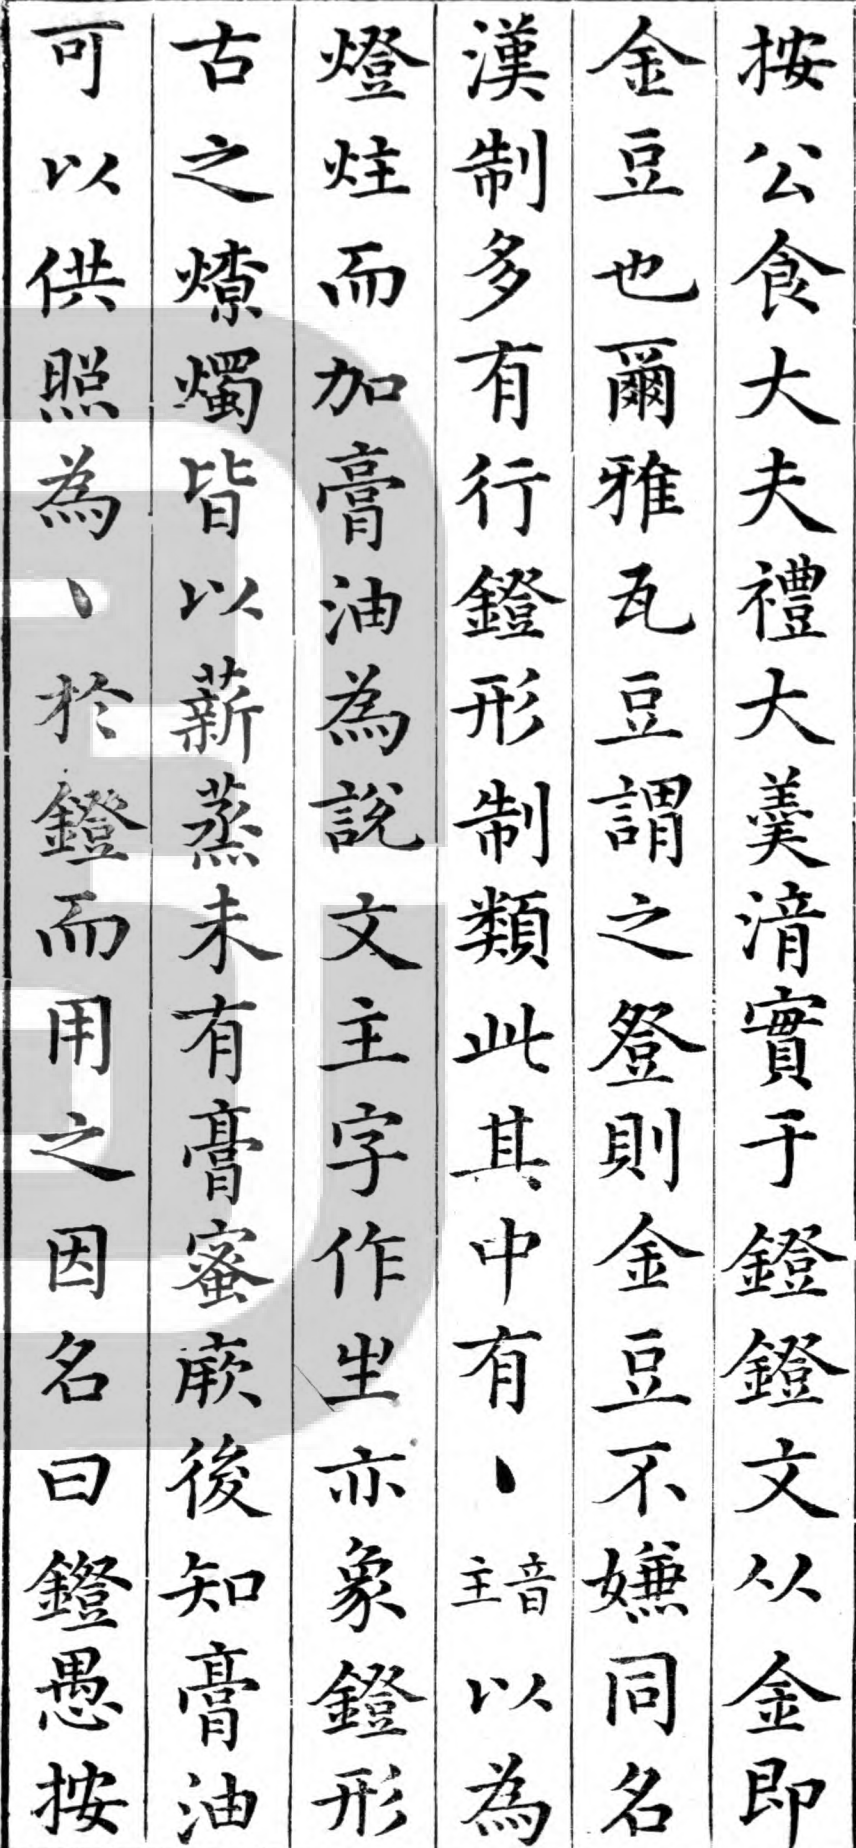 按公食大夫禮大羹湇實于鐙鐙文从金即
金豆也爾雅瓦豆謂之豋則金豆不嫌同名
漢制多有行鐙形制類此其中有丶音主以為
燈炷而加膏油為說文主字作𡉚亦象鐙形
古之燎燭皆以薪蒸未有膏蜜厥後知膏油
可以供照為丶於鐙而用之因名曰鐙愚按